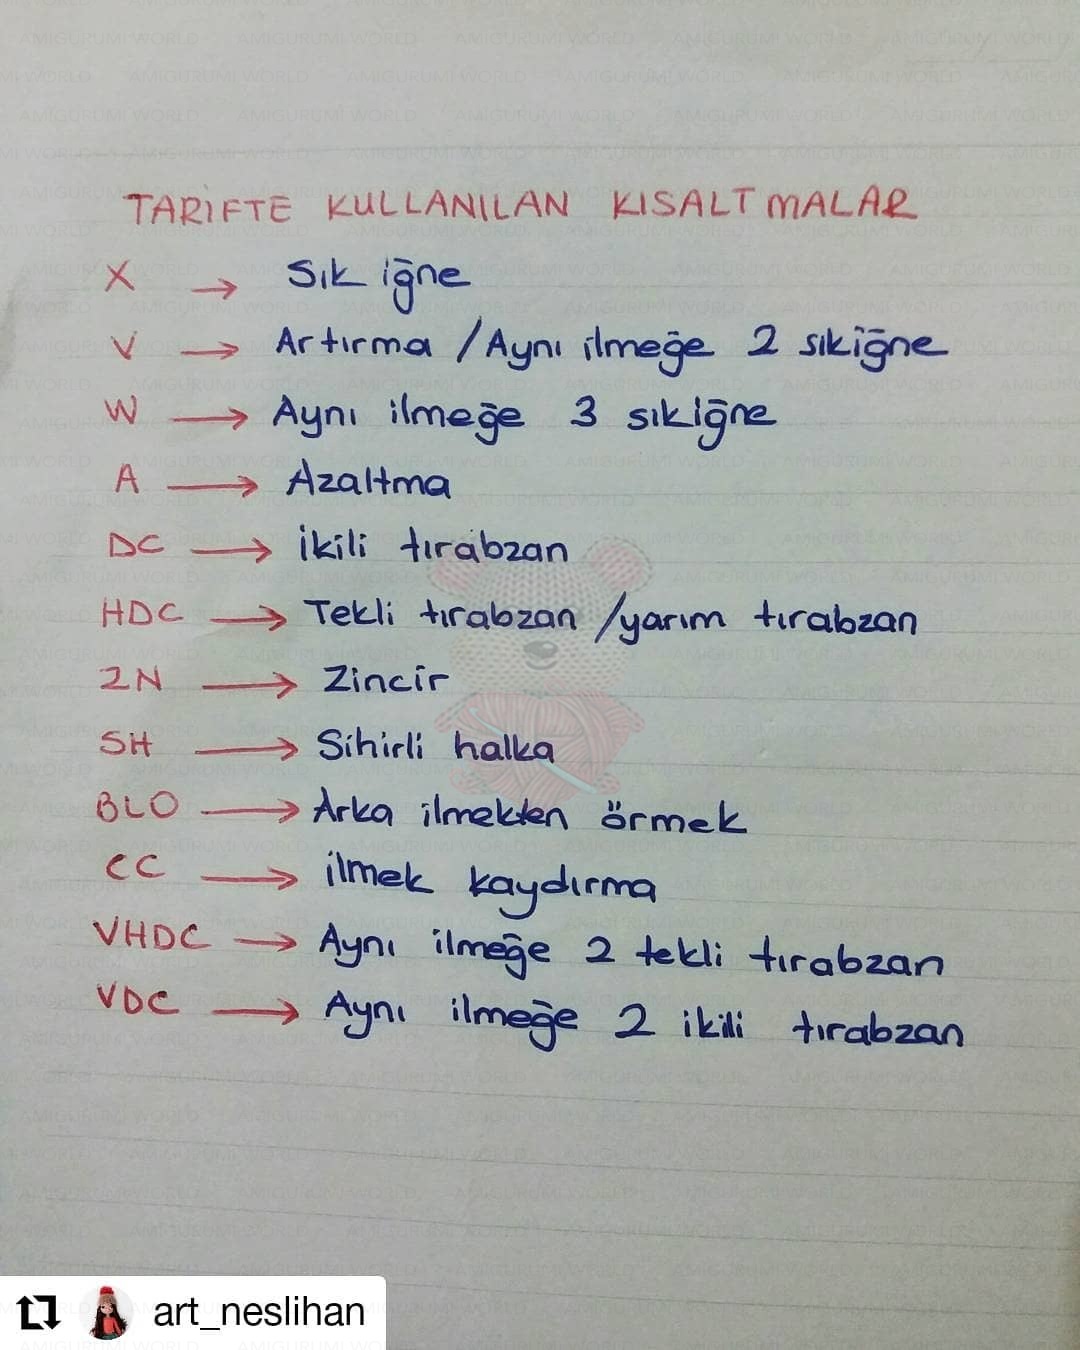 TARİFTE KULLANILAN KISALTMALAR
X → Sık iğne
V → Artırma / Aynı ilmeğe 2 sıkiğne
W → Aynı ilmeğe 3 sıkiğne
A → Azaltma
DC → İkili tırabzan
HDC → Tekli tırabzan / yarım tırabzan
ZN → Zincir
SH → Sihirli halka
BLO → Arka ilmekten örmek
CC → ilmek kaydırma
VHDC → Aynı ilmeğe 2 tekli tırabzan
VDC → Aynı ilmeğe 2 ikili tırabzan
art_neslihan
AMIGURUMI WORLD